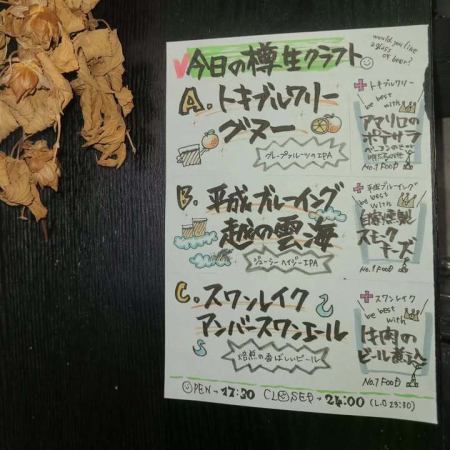 今日の樽生クラフト
would you like
a glass
of beer?
A. トキブルワリー
グヌー
グレープフルーツのIPA
トキブルワリー
be best
with
アマリロの
ポテサラ
No.1 FOOD
B. 平成ブルーイング
越の雲海
ジューシーヘイジーIPA
平成ブルーイング
be best
with
自家燻製
スモーク
チーズ
No.1 FOOD
C. スワンレイク
アンバースワンエール
焙煎の香ばしいビール
スワンレイク
be best
with
牛肉の
ビール煮込
No.1 FOOD
OPEN→17:30 CLOSED→24:00 (L.O 23:30)